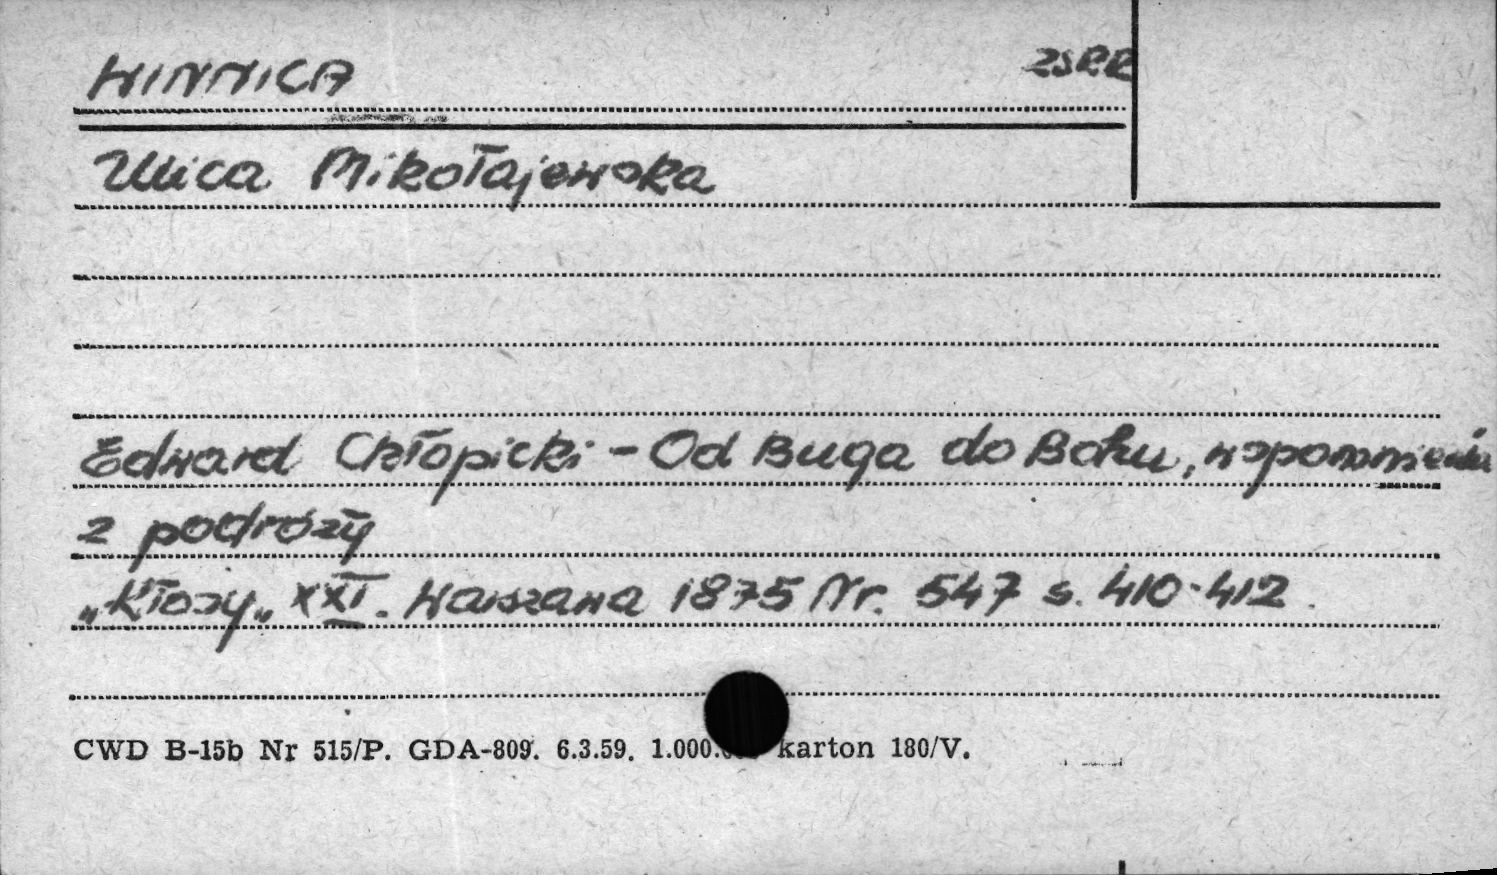 WINNICA ZSRR
Ulica Mikołajewska
Edward Chłopicki - Od Buga do Bohu, wspomnienia
z podróży
„Kłosy„ XXI. Warszawa 1875 Nr. 547 s. 410-412.
CWD B-15b Nr 515/P. GDA-809. 6.3.59. 1.000. karton 180/V.